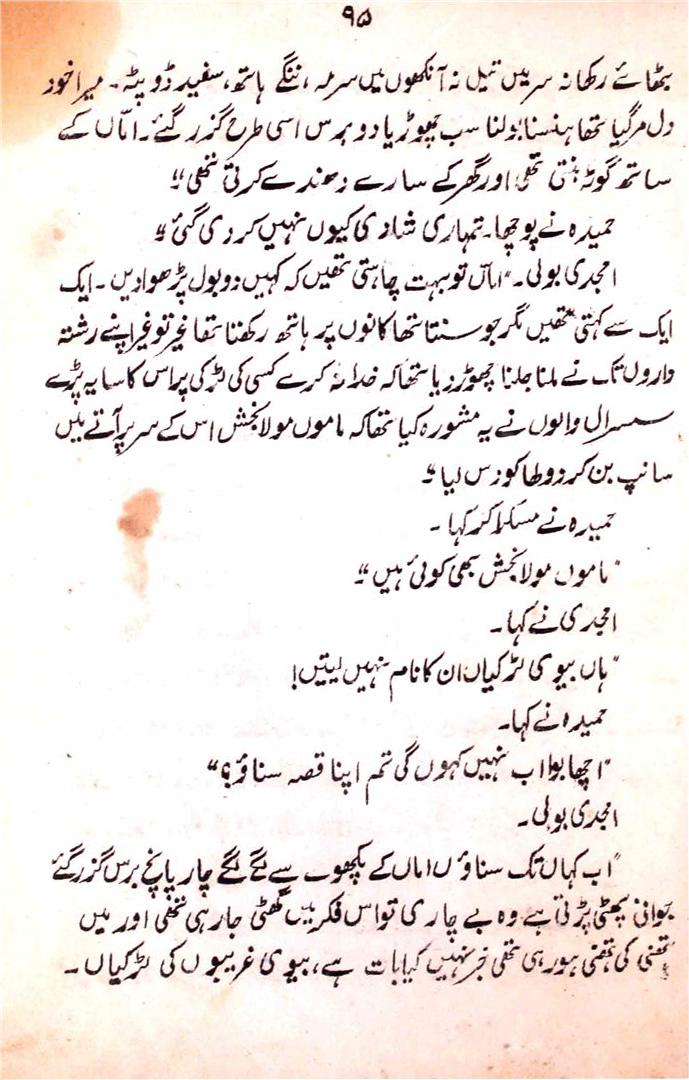 ۹۵
بٹھائے رکھا نہ سر میں تیل نہ آنکھوں میں سرمہ، ننگے ہاتھ، سفید ڈوپٹہ۔ میرا خود
دل مر گیا تھا ہنسنا بولنا سب چھوڑ یا دو برس اسی طرح گزر گئے۔ اماں کے
ساتھ گوٹہ بنتی تھی اور گھر کے سارے دھندے کرتی تھی“
حمیدہ نے پوچھا۔ تمہاری شادی کیوں نہیں کر دی گئی“
امجدی بولی۔ ”اماں تو بہت چاہتی تھیں کہ کہیں دو بول پڑھوا دیں۔ ایک
ایک سے کہتی تھیں مگر جو سنتا تھا کانوں پر ہاتھ رکھتا تھا غیر تو غیر اپنے رشتہ
داروں تک نے ملنا جلنا چھوڑ دیا تھا کہ خدا نہ کرے کسی کی لڑکی پر اس کا سایہ پڑے
سسرال والوں نے یہ مشورہ کیا تھا کہ ماموں مولا بخش اس کے سر پر آتے ہیں
سانپ بن کر دولھا کو ڈس لیا“
حمیدہ نے مسکرا کر کہا۔
”ماموں مولا بخش بھی کوئی ہیں“
امجدی نے کہا۔
”ہاں بیوی لڑکیاں ان کا نام نہیں لیتیں!
حمیدہ نے کہا۔
”اچھا بوا اب نہیں کہوں گی تم اپنا قصہ سناؤ؟“
امجدی بولی۔
”اب کہاں تک سناؤں اماں کے پکھوے سے لگے لگے چار پانچ برس گزر گئے
جوانی پھٹی پڑتی ہے وہ بے چاری تو اس فکر میں گھٹی جا رہی تھی اور میں
تھنی کی ہتھنی ہو رہی تھی خبر نہیں کیا بات ہے، بیوی غریبوں کی لڑکیاں۔